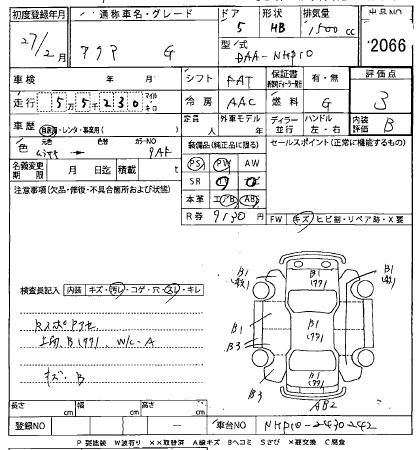 初度登録年月 通称車名・グレード ドア 形状 排気量 出品NO
27/2月 アクア G 5 HB 1500cc 2066
型式 DAA-NHP10
車検 年 月 シフト FAT 保証書 有・無 評価点 3
走行 5万5千230 マイル・キロ 冷房 AAC 燃料 G
車歴 自家用・レンタ・事業用( ) 定員 人 外車モデル ディーラー 並行 ハンドル 左・右 内装評価 B
色 元色 色替 カラーNO 装備品(純正品に限る) セールスポイント(正常に機能するもの)
9AF PS PW AW
名義変更期限 月 日迄 積載 t SR
注意事項(欠品・修復・不具合箇所および状態) 本革 エアB ABS
R券 9130円 FW キズ・ヒビ割・リペア跡・X要
B1 B1
(771)
検査員記入 内装 キズ・汚レ・コゲ・穴・スレ・キレ
B1 B1
(771)
B3
W/C-A
キズ・B
B3 B1
(771)
AB2
長さ cm 幅 cm 高さ cm
登録NO 車台NO NHP10-2430242
P要塗装 W波有り XX取替済 A線キズ Bヘコミ Sさび X要交換 C腐食